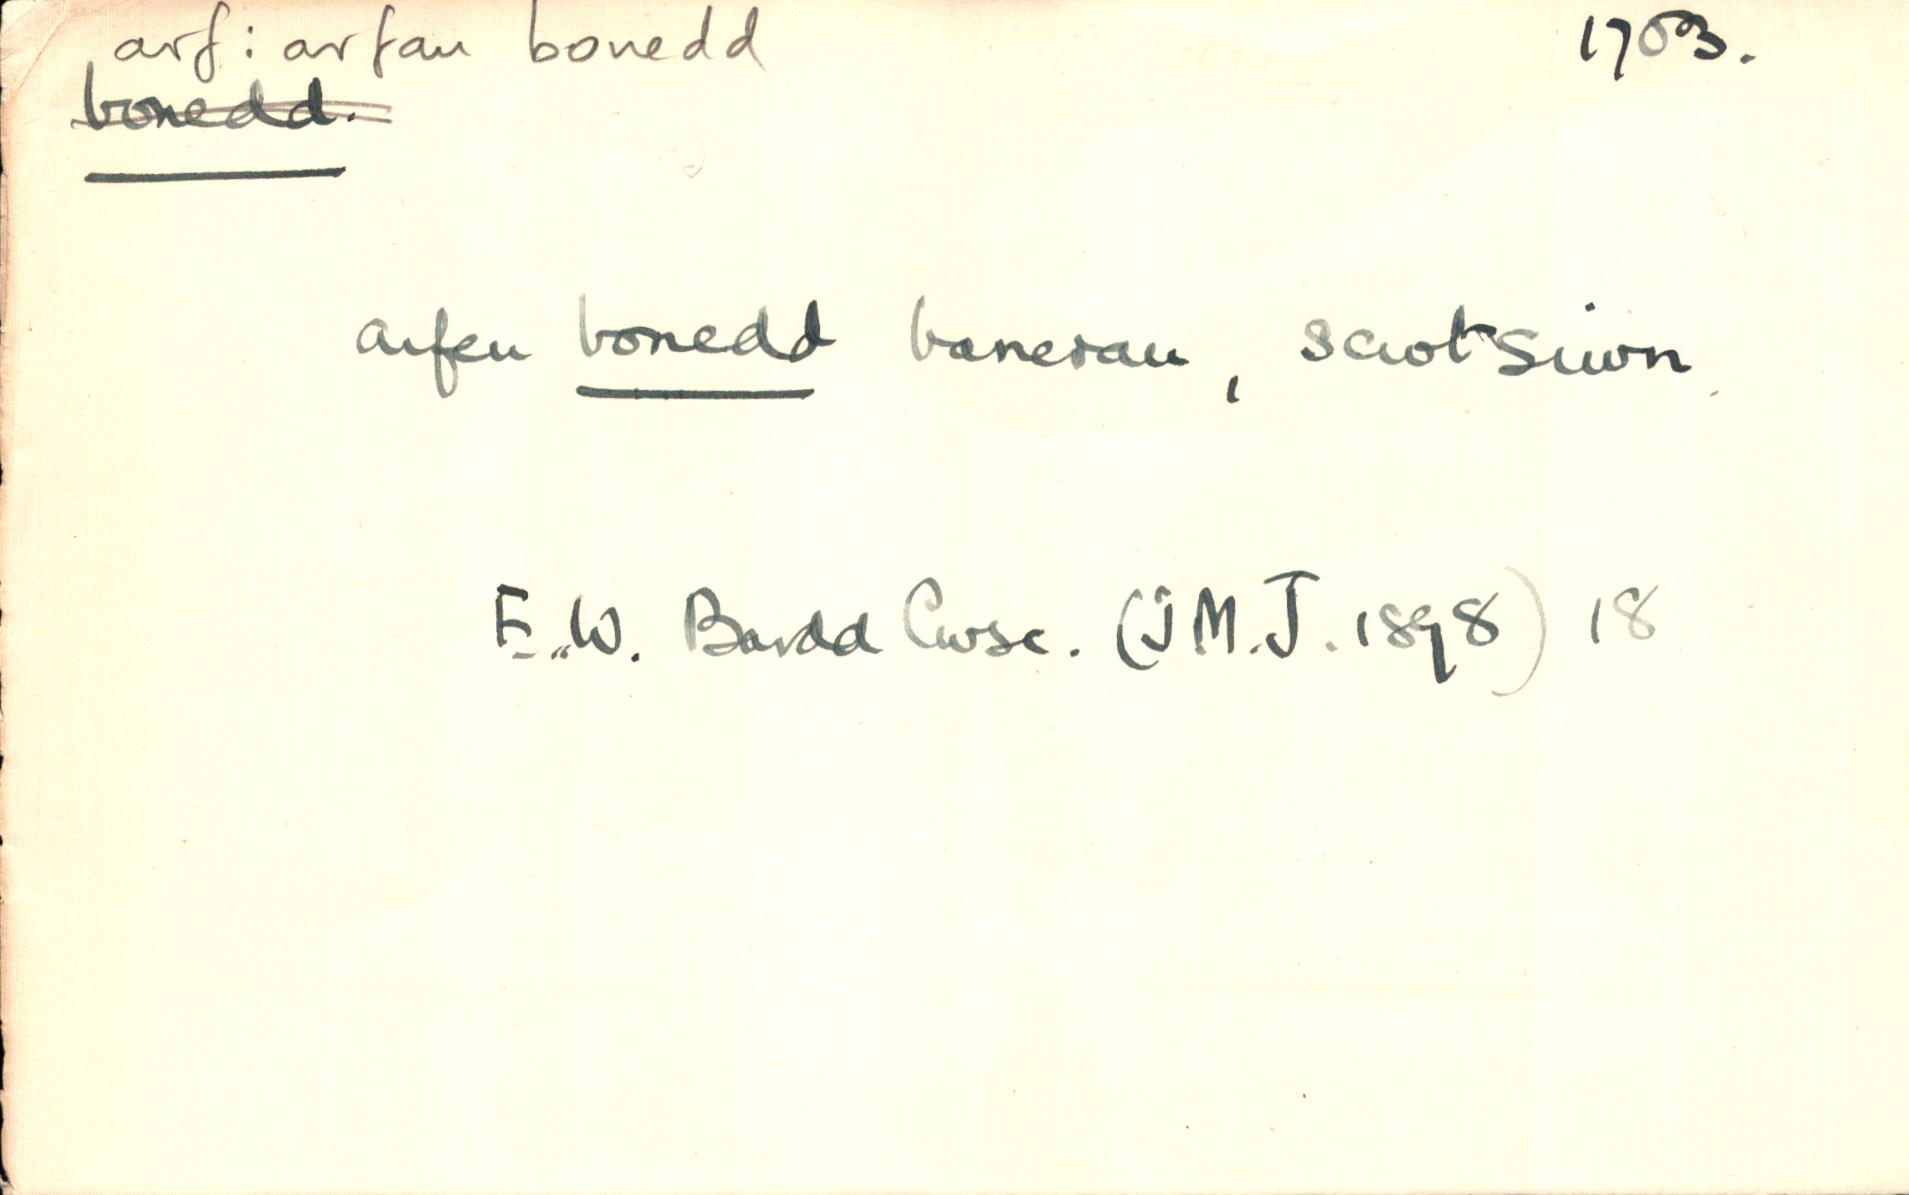 arf: arfau bonedd 1703.
bonedd.
arfeu bonedd banerau, scwtsiwn.
E.W. Bardd Cwsc. (J.M.J. 1898) 18